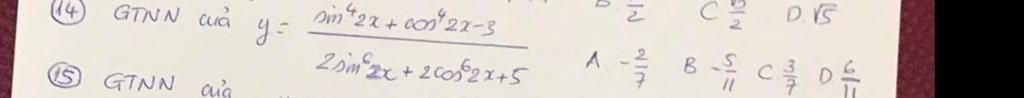 B. /2 C √5/2 D. √5
(14) GTNN của y = (sin⁴2x + cos⁴2x - 3)/(2sin⁶2x + 2cos⁶2x + 5) A. -2/7 B -5/11 C. 3/7 D 6/11
(15) GTNN của